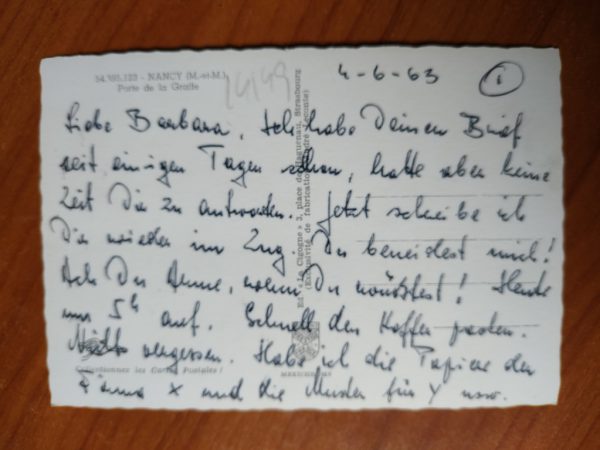 54.395.133 - NANCY (M.-et-M.)
Porte de la Graffe
4-6-63
1
Liebe Barbara, Ich habe Deinen Brief
seit einigen Tagen schon, hatte aber keine
Zeit Dir zu antworten. Jetzt schreibe ich
Dir wieder im Zug. Du beneidest mich!
Ach Du Arme, wenn Du wüsstest! Heute
um 5h auf. Schnell den Koffer packen.
Nichts vergessen. Habe ich die Papiere der
Firma X und die Muster für Y usw.
Ed. "La Cigogne" 3, place de Haguenau, Strasbourg
(Exclusivité de fabrication André Leconte)
Collectionnez les Cartes Postales!